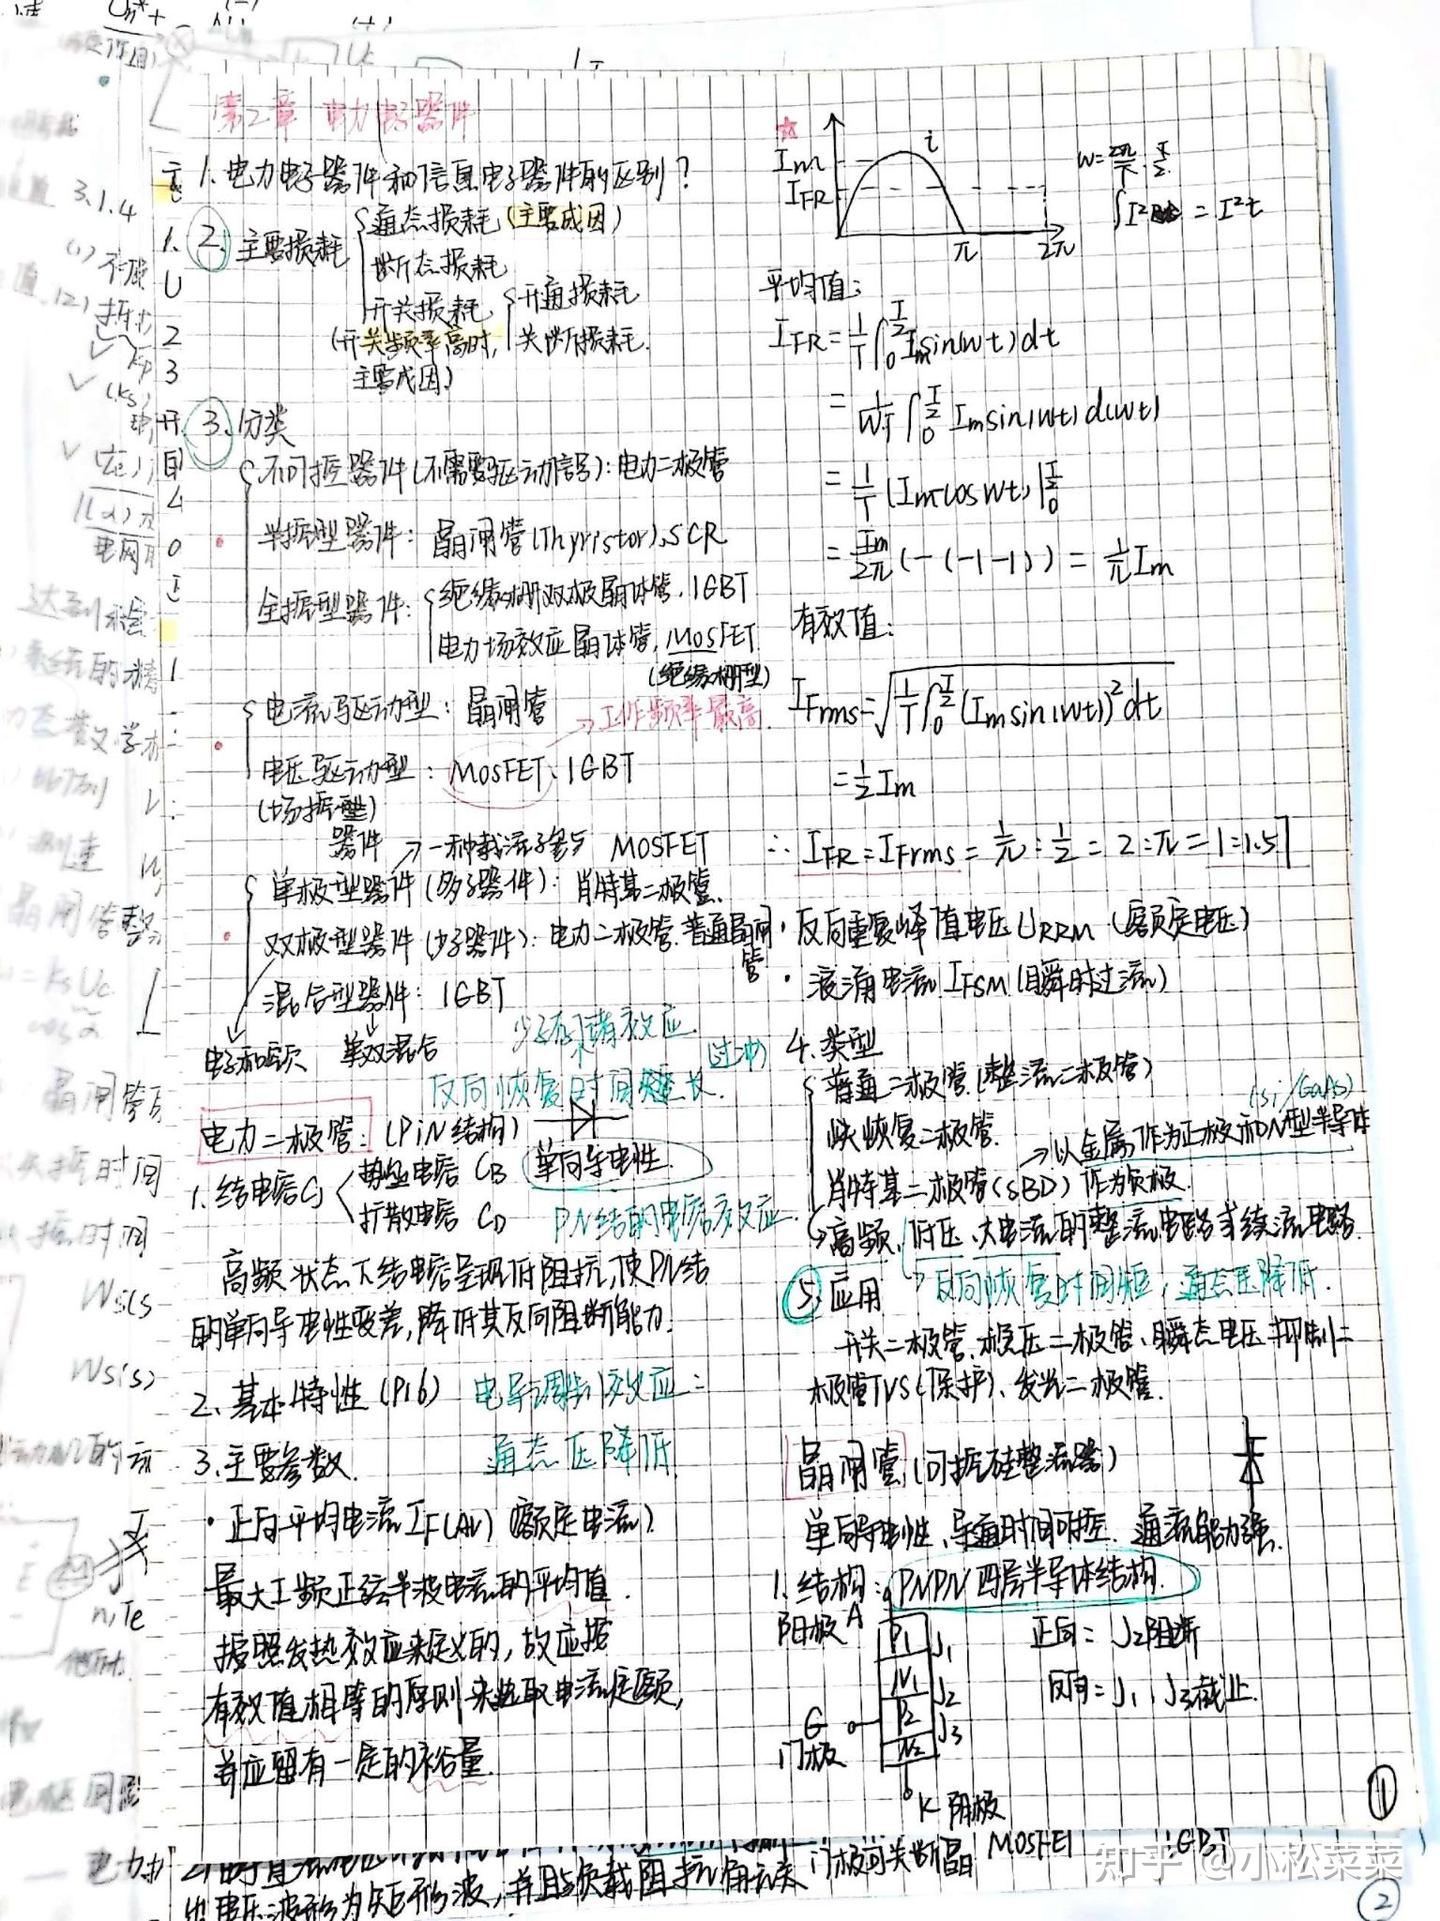 第2章 电力电子器件
1. 电力电子器件和信息电子器件的区别?
2. 主要损耗
通态损耗 (主要成因)
断态损耗
开关损耗
开通损耗
关断损耗.
(开关频率高时,
主要成因)
3. 分类
不可控器件(不需要驱动信号): 电力二极管
半控型器件: 晶闸管(Thyristor)、SCR
全控型器件: 绝缘栅双极晶体管. IGBT
电力场效应晶体管. MOSFET
(绝缘栅型)
电流驱动型: 晶闸管
→工作频率最高.
电压驱动型: MOSFET、IGBT
(场控型)
器件 →一种载流子参与 MOSFET
单极型器件 (多子器件): 肖特基二极管.
双极型器件 (少子器件): 电力二极管. 普通晶闸
管
混合型器件: IGBT
电子和空穴 单双混合
少子存储效应
反向恢复时间 长 (过冲)
电力二极管: (PiN结构)
1. 结电容CJ
势垒电容 CB 单向导电性.
扩散电容 CD PN结的电容效应
高频状态下结电容呈现低阻抗,使PN结
的单向导电性变差,降低其反向阻断能力.
2. 基本特性 (P16) 电导调制效应:
通态压降低
3. 主要参数.
· 正向平均电流 IF(AV) (额定电流).
最大工频正弦半波电流的平均值.
按照发热效应来定义的, 故应按
有效值相等的原则来选取电流定额,
并应留有一定的裕量.
☆
Im
IFR
i
π 2π
w = 2π/T · T/2
= I²t
平均值:
IFR = 1/T ∫₀^(T/2) Im sin(wt) dt
= 1/wT ∫₀^(T/2) Im sin(wt) d(wt)
= 1/T (Im cos wt)|₀^(T/2)
= Im/2π (-(-1-1)) = 1/π Im
有效值:
IFrms = √(1/T ∫₀^(T/2) (Im sin(wt))² dt)
= 1/2 Im
∴ IFR : IFrms = 1/π : 1/2 = 2 : π = 1 : 1.57
· 反向重复峰值电压 URRM (额定电压)
· 浪涌电流 IFSM (瞬时过流)
4. 类型
普通二极管. (整流二极管)
快恢复二极管.
(Si/GaAs)
→以金属作为正极和N型半导体
肖特基二极管(SBD) 作为负极.
→高频、低压、大电流的整流电路或续流电路.
→反向恢复时间短, 通态压降低.
5. 应用
开关二极管、稳压二极管、瞬态电压抑制二
极管TVS(保护)、发光二极管.
晶闸管(可控硅整流器)
单向导电性、导通时间可控. 通流能力强.
1. 结构: PNPN四层半导体结构.
阳极A
P1 J1
N1 J2
P2 J3
N2
G
门极
K 阴极
正向: J2阻断
反向: J1、J3截止.
①
3.1.4
Kp
(Ks)
电网
达到稳
动态数学
测速
晶闸管整
= Ks Uc
cos α
晶闸管
失控时间
控时间
Ws(s
Ws(s)
E
n,Te
电枢回路
出电压波形为矩形波, 并且与负载阻抗角无关 门极可关断晶 MOSFET IGBT
②
知乎 @小松菜菜